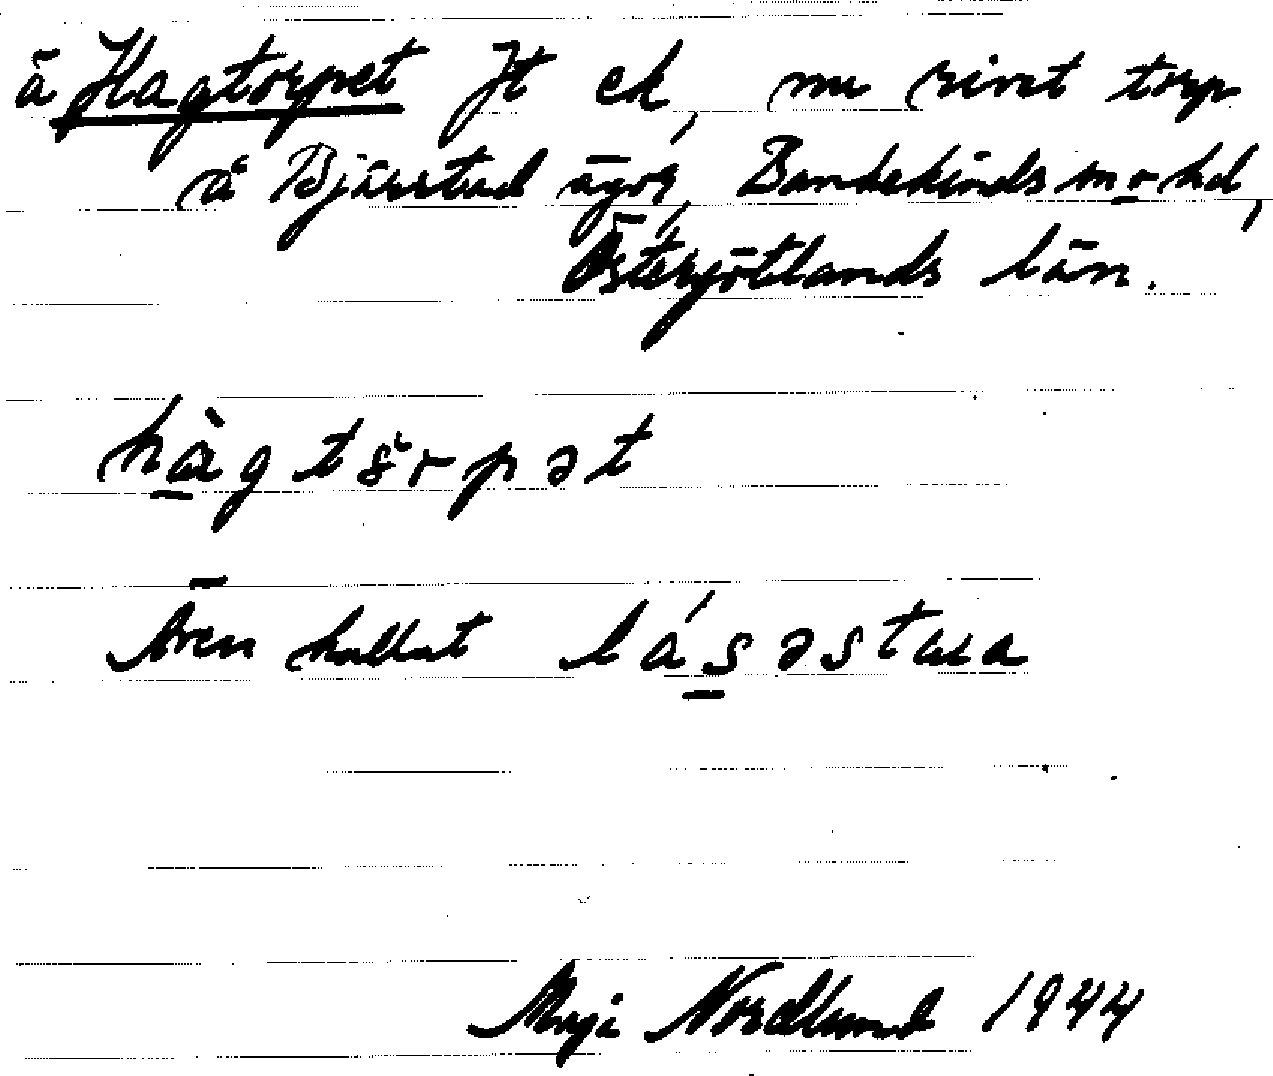 å Hagtorpet Jt ek, nu rivet torp
å Bjärstad ägor, Bankekinds m o hd,
Östergötlands län.
hàgtörpət
Även kallat lásəstua
Maja Nordlund 1944